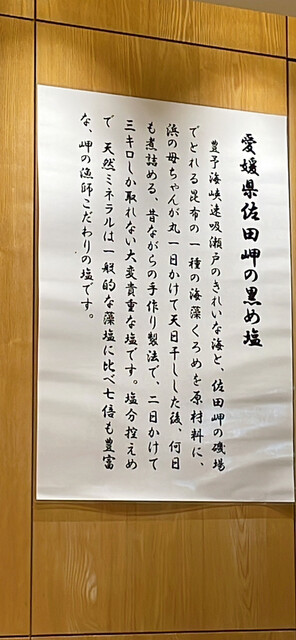 愛媛県佐田岬の黒め塩
豊予海峡速吸瀬戸のきれいな海と、佐田岬の磯場
でとれる昆布の一種の海藻くろめを原材料に、
浜の母ちゃんが丸一日かけて天日干しした後、何日
も煮詰める、昔ながらの手作り製法で、二日かけて
三キロしか取れない大変貴重な塩です。塩分控えめ
で 天然ミネラルは一般的な藻塩に比べ七倍も豊富
な、岬の漁師こだわりの塩です。